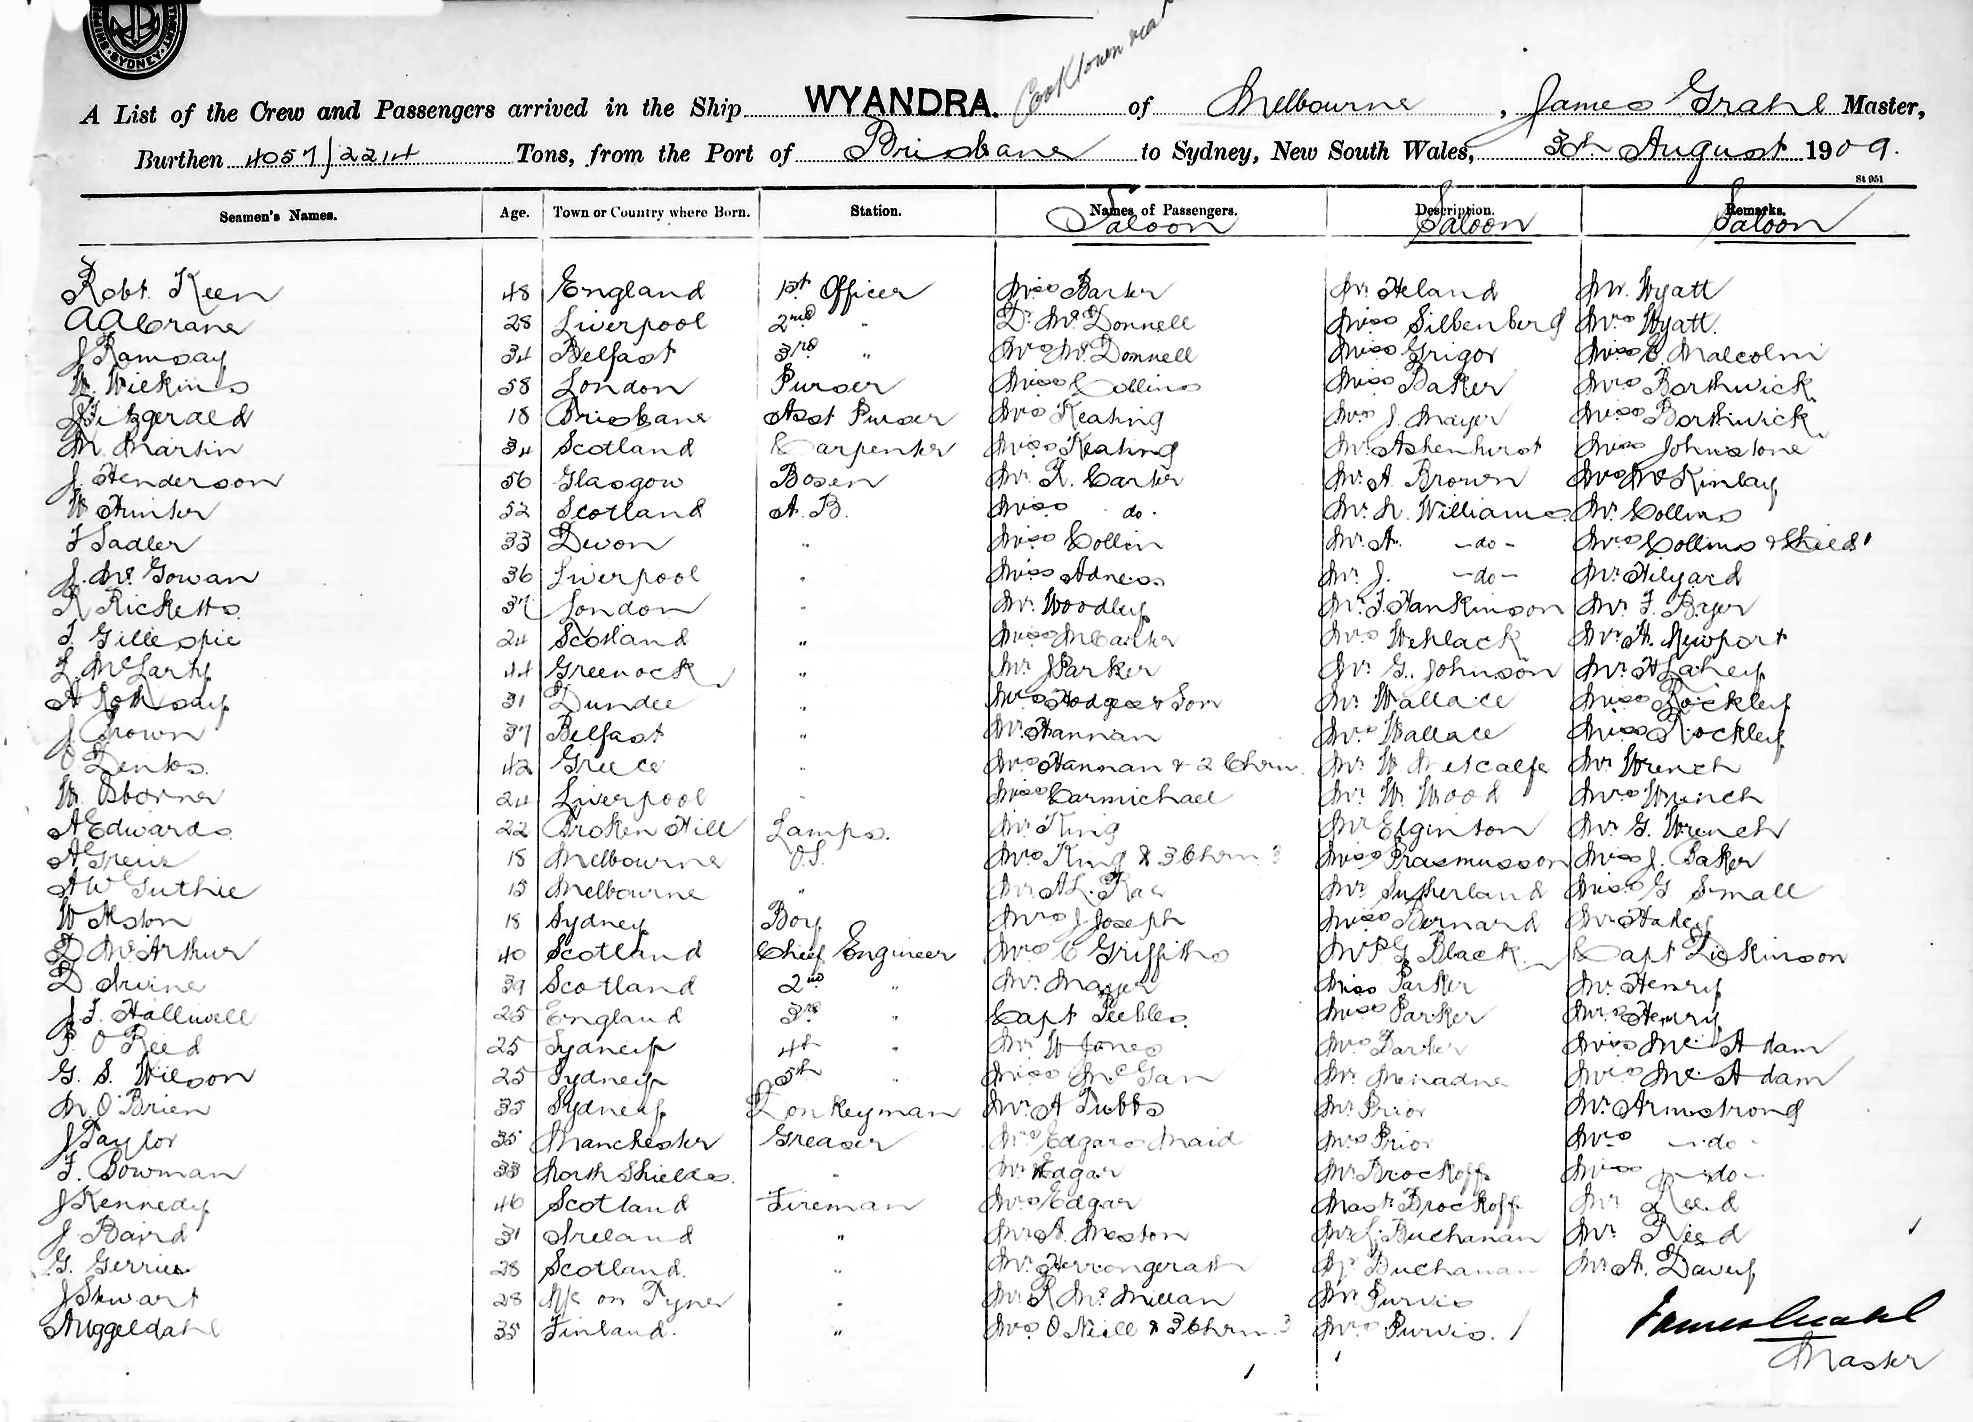 SYDNEY
Cooktown via
A List of the Crew and Passengers arrived in the Ship WYANDRA. of Melbourne, James Grahl Master,
Burthen 4057/2214 Tons, from the Port of Brisbane to Sydney, New South Wales, 30th August 1909.
St 951
Seamen's Names. Age. Town or Country where Born. Station. Names of Passengers. Description. Remarks.
Saloon Saloon Saloon
Robt Keen 48 England 1st Officer Miss Barker Mr. Heland Mr. Wyatt
A A Crane 28 Liverpool 2nd " Dr. McDonnell Miss Silbenberg Mrs Wyatt.
J Ramsay 34 Belfast 3rd " Mrs McDonnell Miss Grigor Miss C. Malcolm
W. Wilkins 58 London Purser Miss Collins Miss Baker Mrs Borthwick
J Fitzgerald 18 Brisbane Asst Purser Mrs Keating Mrs J. Mayer Miss Borthwick
M Martin 34 Scotland Carpenter Miss Keating Mr. Ashenhurst Miss Johnstone
J. Henderson 56 Glasgow Bosen Mr. R. Carter Mr. A Brown Mrs McKinlay
W Hunter 52 Scotland A. B. Miss do. Mr. N. Williams Mr. Collins
F Sadler 33 Devon " Miss Collin Mr. A. -do- Mrs Collins & Child
J. McGowan 36 Liverpool " Miss Adness Mr. J. -do- Mr. Hilyard
R Ricketts 37 London " Mr. Woodley Mr. F. Hankinson Mr. F. Bayer
T. Gillespie 24 Scotland " Miss McCarter Mrs Wehlack Mr. H. Newport
L. McLarty 44 Greenock " Mr. J Parker Mr. G. Johnson Mr. H Lahey
A Rothsay 31 Dundee " Mrs Hodges & Son Mr. Wallace Miss Rockley
J Brown 37 Belfast " Mr. Hannan Mrs Wallace Miss Rockley
Lentos 42 Greece " Mrs Hannan & 2 Chrn. Mr. W Metcalfe Mr. Wrench
W. Osborne 24 Liverpool " Miss Carmichael Mr. W. Wood Mrs Wrench
A Edwards 22 Broken Hill Lamps. Mr. King Mr Elginton Mr. G. Wrench
A Greus 18 Melbourne O.S. Mrs King & 3 Chrn 3 Miss Prasmusson Miss J. Baker
A W Guthrie 18 Melbourne " Mr. A L. Rae Mr. Sutherland Miss G Small
W Alston 18 Sydney Boy Mrs J Joseph Miss Bernard Mr Haley
D McArthur 40 Scotland Chief Engineer Mrs C Griffiths Mr P G Black Capt Dickinson
D. Irvine 39 Scotland 2nd " Mr. Mayer Miss Parker Mr. Henry
J. F. Halliwell 25 England 3rd " Capt Peebles. Miss Parker Mrs Henry
P. O Reed 25 Sydney 4th " Mr W Jones Mrs Parker Miss McAdam
G. S. Wilson 25 Sydney 5th " Miss McGan Mr. Menadue Miss McAdam
M O'Brien 35 Sydney Donkeyman Mr. A Tubbs Mr Prior Mr. Armstrong
J Taylor 35 Manchester Greaser Mrs Edgars Maid Mrs Prior Mrs -do-
F. Bowman 33 North Shields. " Mr. Edgar Mr. Brockoff Miss -do-
J Kennedy 46 Scotland Fireman Mrs Edgar Mastr Brockoff Mr. Reed
J. Baird 31 Ireland " Mr. A. Meston Mr. J. Buchanan Mr. Reed
G. Gerrie 28 Scotland. " Mr. Herrongerath Mr Buchanan Mr. A. Davey
J Stewart 28 N/c on Tyne " Mr. R McMillan Mr. Purvis
A Uggeldahl 35 Finland. " Mrs O'Neill & 3 Chrn. 3 Mrs Purvis.
James Grahl
Master